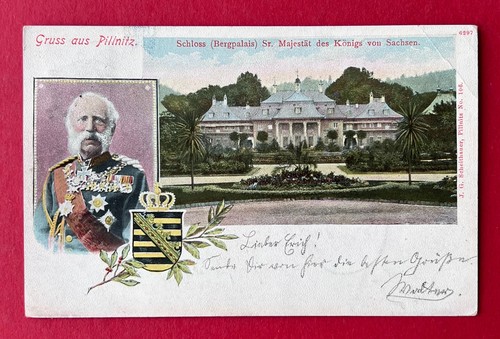 Gruss aus Pillnitz.
Schloss (Bergpalais) Sr. Majestät des Königs von Sachsen.
6297
J. G. Schönbauer, Pillnitz No. 106.
Lieber Erich!
Sende Dir von hier die besten Grüße
Walter.